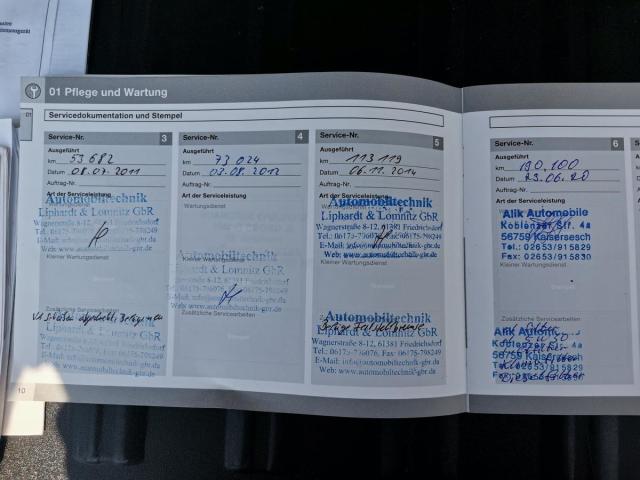 01 Pflege und Wartung
01
Servicedokumentation und Stempel
Service-Nr. 3
Ausgeführt
km 53 682
Datum 08.07.2011
Auftrag-Nr.
Art der Serviceleistung
Automobiltechnik
Liphardt & Lomnitz GbR
Wagnerstraße 8-12, 61381 Friedrichsdorf
Web: www.automobiltechnik-gbr.de
Kleiner Wartungsdienst
Zusätzliche Servicearbeiten
Automobiltechnik
Liphardt & Lomnitz GbR
Wagnerstraße 8-12, 61381 Friedrichsdorf
Tel.: 06175-796076, Fax: 06175-798249
E-Mail: info@automobiltechnik-gbr.de
Web: www.automobiltechnik-gbr.de
10
Service-Nr. 4
Ausgeführt
km 73 024
Datum 03.08.2012
Auftrag-Nr.
Art der Serviceleistung
Wartungsdienst
Automobiltechnik
Liphardt & Lomnitz GbR
Kleiner Wartungsdienst
www.automobiltechnik-gbr.de
Zusätzliche Servicearbeiten
Service-Nr. 5
Ausgeführt
km 113 119
Datum 06.11.2014
Auftrag-Nr.
Art der Serviceleistung
Automobiltechnik
Liphardt & Lomnitz GbR
Wagnerstraße 8-12, 61381 Friedrichsdorf
Tel.: 06175-796076, Fax: 06175-798249
E-Mail: info@automobiltechnik-gbr.de
Web: www.automobiltechnik-gbr.de
Kleiner Wartungsdienst
Zusätzliche Servicearbeiten
Automobiltechnik
Liphardt & Lomnitz GbR
Wagnerstraße 8-12, 61381 Friedrichsdorf
Tel.: 06175-796076, Fax: 06175-798249
E-Mail: info@automobiltechnik-gbr.de
Web: www.automobiltechnik-gbr.de
Service-Nr. 6
Ausgeführt
km 190.100
Datum 23.06.20
Auftrag-Nr.
Art der Serviceleistung
Alik Automobile
Koblenzer Str. 4a
56759 Kaisersesch
Tel.: 02653/915829
Fax: 02653/915830
Kleiner Wartungsdienst
Zusätzliche Servicearbeiten
Alik
Koblenzer Str. 4a
56759 Kaisersesch